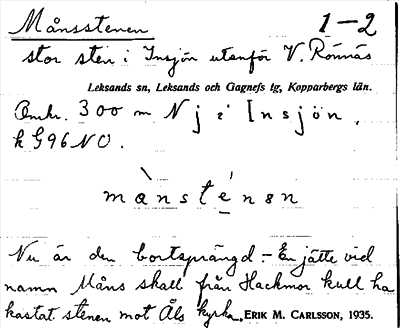 Månsstenen 1-2
stor sten i Insjön utanför V. Rönnäs
Leksands sn, Leksands och Gagnefs tg, Kopparbergs län.
Omkr. 300 m N j i Insjön,
k G96 NO.
mànsté̱nən
Nu är den bortsprängd. – En jätte vid
namn Måns skall från Hackmor kull ha
kastat stenen mot Åls kyrka. ERIK M. CARLSSON, 1935.